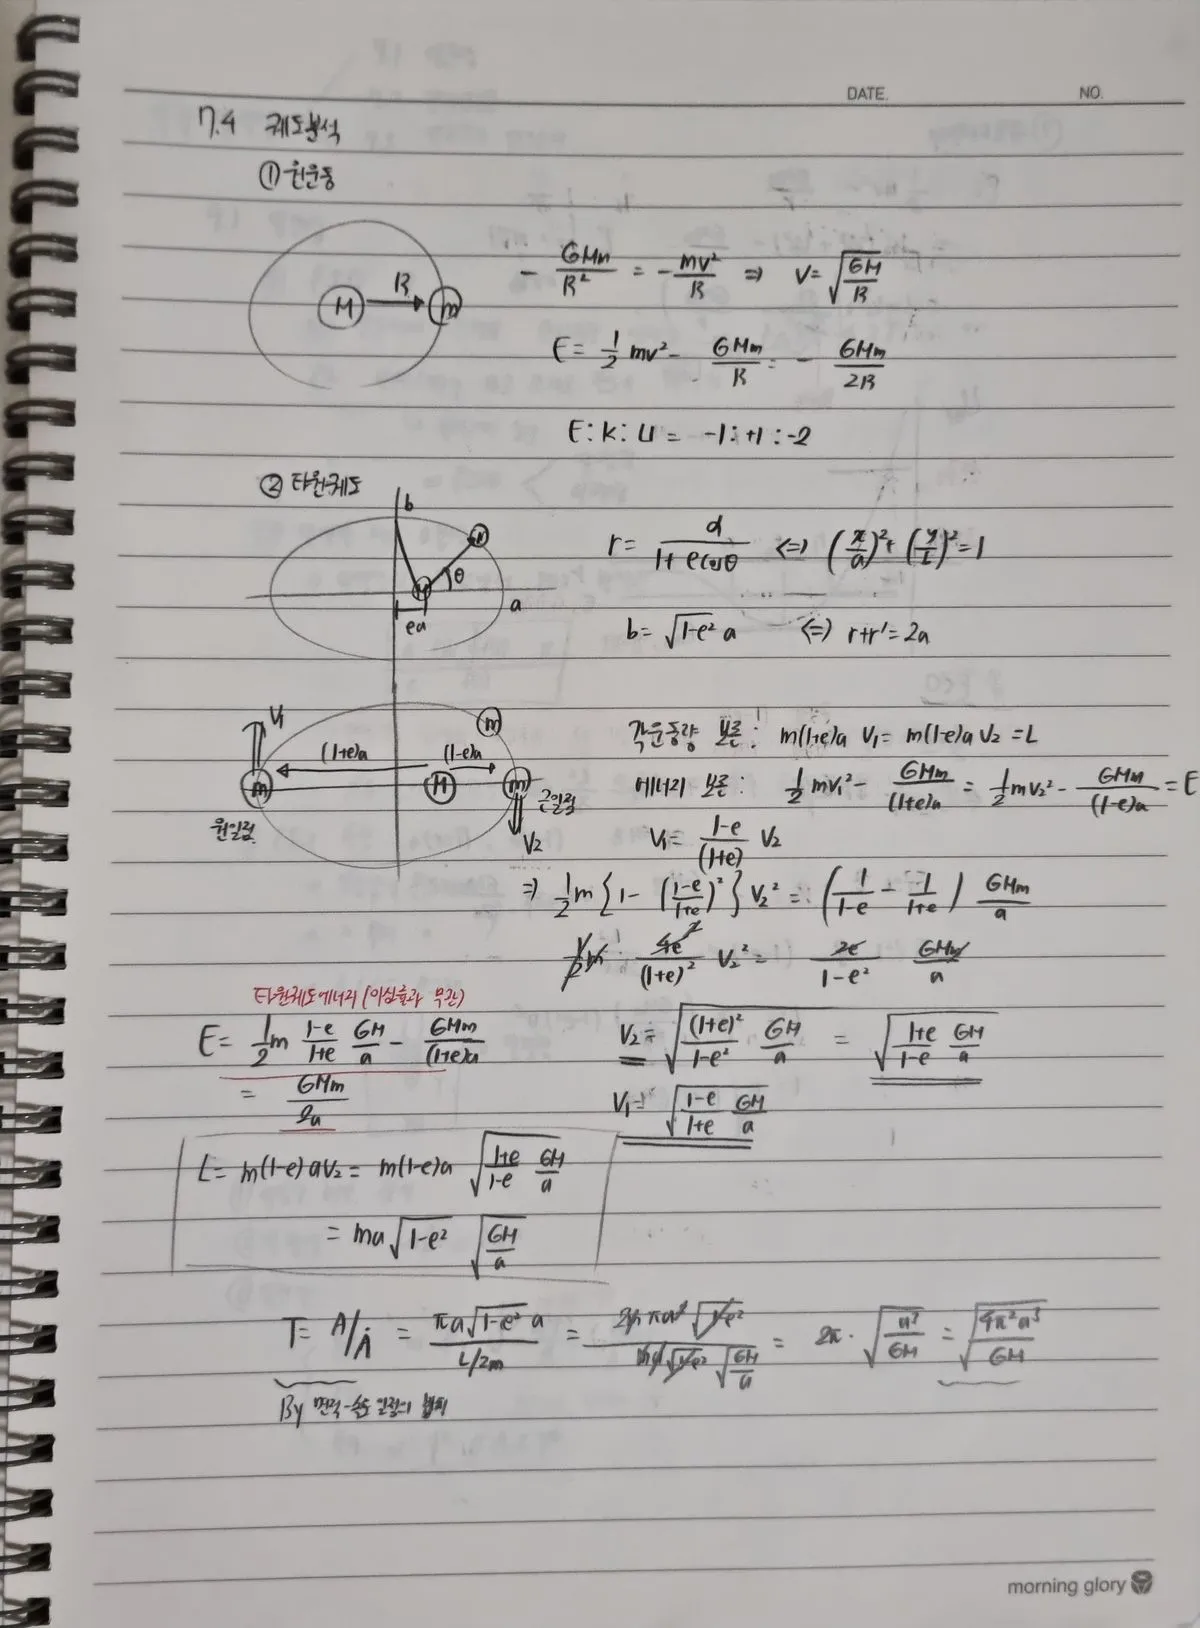 DATE. NO.
7.4 궤도분석
① 원운동
M R m
- GMm/R² = - mv²/R ⇒ V = √(GM/R)
E = 1/2 mv² - GMm/R = - GMm/2R
E : K : U = -1 : +1 : -2
② 타원궤도
b
θ
a
ea
r = α/(1+ecosθ) ⇔ (x/a)² + (y/b)² = 1
b = √(1-e²) a ⇔ r+r' = 2a
V₁ (1+e)a (1-e)a m
m M m
원일점 근일점
V₂
각운동량 보존 : m(1+e)a V₁ = m(1-e)a V₂ = L
에너지 보존 : 1/2 mV₁² - GMm/(1+e)a = 1/2 mV₂² - GMm/(1-e)a = E
V₁ = (1-e)/(1+e) V₂
⇒ 1/2 m { 1 - ((1-e)/(1+e))² } V₂² = (1/(1-e) - 1/(1+e)) GMm/a
1/2 m 4e/(1+e)² V₂² = 2e/(1-e²) GMm/a
타원궤도에너지 (이심률과 무관)
E = 1/2 m (1-e)/(1+e) GM/a - GMm/(1+e)a
= GMm/2a
V₂ = √((1+e)²/(1-e²) GM/a) = √((1+e)/(1-e) GM/a)
V₁ = √((1-e)/(1+e) GM/a)
L = m(1-e)aV₂ = m(1-e)a √((1+e)/(1-e) GM/a)
= ma√(1-e²) √(GM/a)
T = A/Ȧ = πa√(1-e²) a / (L/2m) = 2m πa² √(1-e²) / (ma√(1-e²) √(GM/a)) = 2π · √(a³/GM) = √(4π²a³/GM)
By 면적-속도 일정의 법칙
morning glory